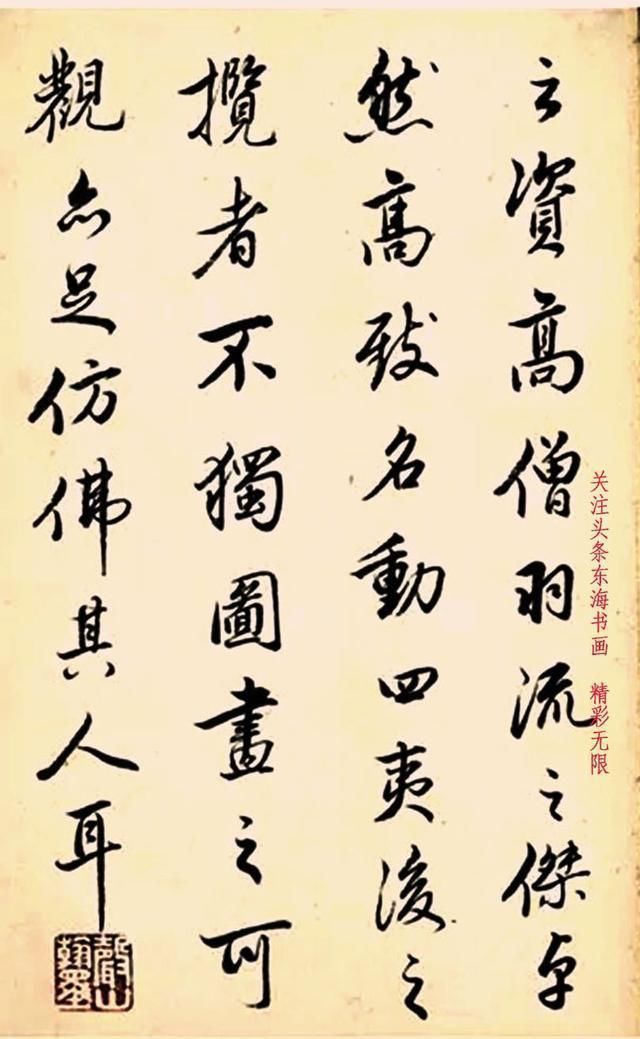 之資高僧羽流之傑卓
然高致名動四夷後之
攬者不獨圖畫之可
觀亦足仿佛其人耳
关注头条东海书画 精彩无限